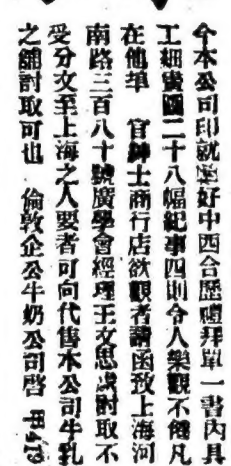 今本公司印就絕好中西合歷禮拜單一書內具
工細賓圖二十八幅紀事四則令人樂觀不倦凡
在他埠 官紳士商行店欲觀者請函致上海河
南路三百八十號廣學會經理王文思處討取不
受分文至上海之人要者可向代售本公司牛乳
之舖討取可也 倫敦企公牛奶公司啓